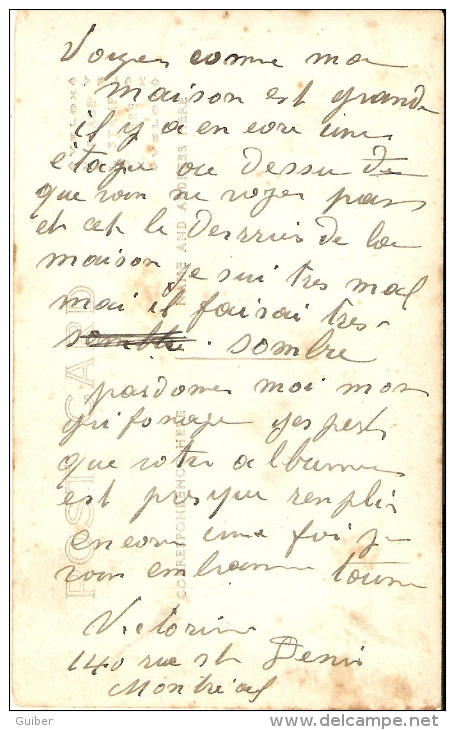 Voyez comme ma
maison est grande
il y a encore une
étage au dessu de
que vous ne voyez pas
et cet le derriès de la
maison je sui tres mal
mai il faisai tres
sombre
pardone moi mon
grifonage j'espert
que votre albume
est presque remplis
encore une foi je
vous embrasse toune
Victorine
140 rue st Denis
Montréal
POST CARD
CORRESPONDENCE HERE
NAME AND ADDRESS HERE
Guiber
www.delcampe.net